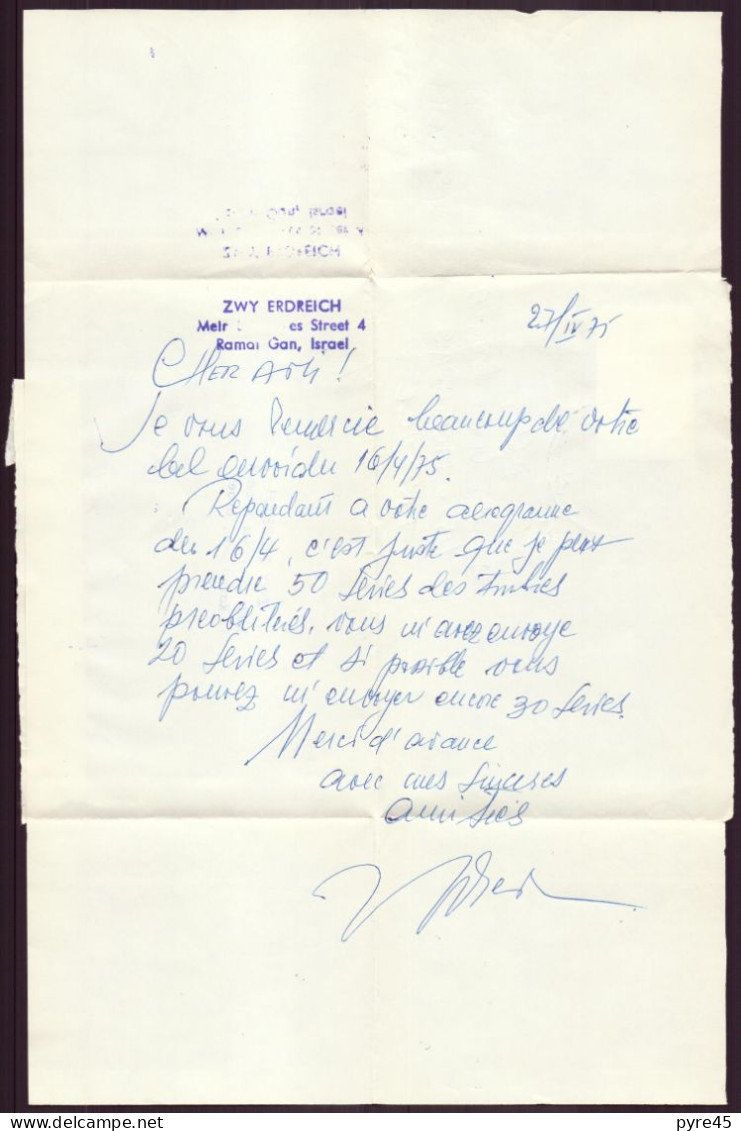 ZWY ERDREICH
Meir es Street 4
Ramat Gan, Israel
27/IV 75
CHER AMI!
Je vous Remercie beaucoup de votre
bel envoi du 16/4/75.
Repondant a votre aerogramme
du 16/4, c'est juste que je peux
prendre 50 series des timbres
preobliterés. vous m'avez envoye
20 series et si possible vous
pouvez m'envoyer encore 30 series.
Merci d'avance
avec mes sinceres
amitiés
pyre45